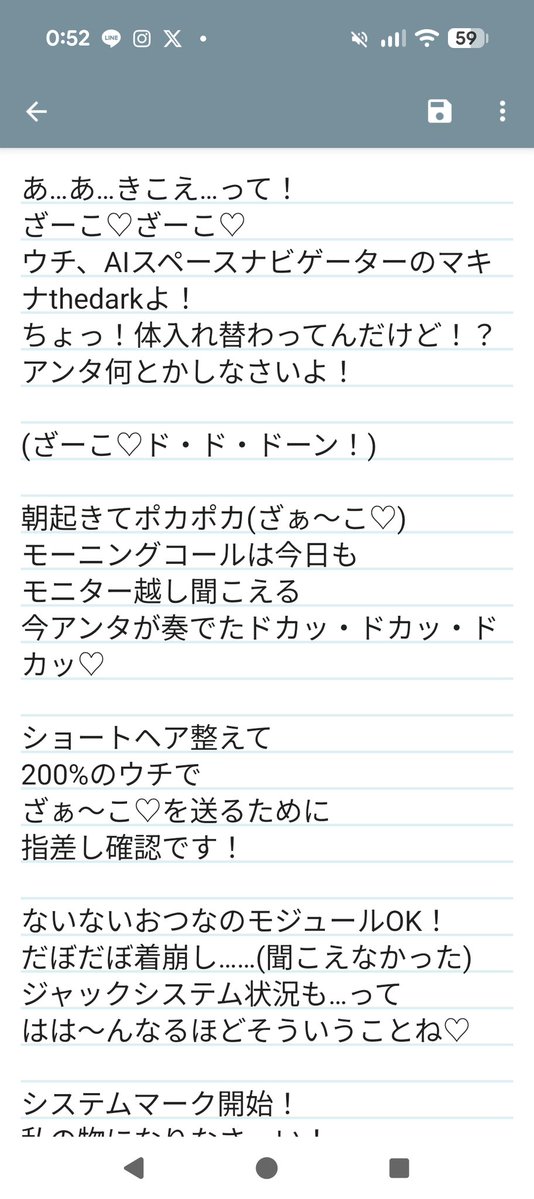 0:52
59
あ…あ…きこえ…って！
ざーこ♡ざーこ♡
ウチ、AIスペースナビゲーターのマキ
ナthedarkよ！
ちょっ！体入れ替わってんだけど！？
アンタ何とかしなさいよ！
(ざーこ♡ド・ド・ドーン！)
朝起きてポカポカ(ざぁ〜こ♡)
モーニングコールは今日も
モニター越し聞こえる
今アンタが奏でたドカッ・ドカッ・ド
カッ♡
ショートヘア整えて
200%のウチで
ざぁ〜こ♡を送るために
指差し確認です！
ないないおつなのモジュールOK！
だぼだぼ着崩し……(聞こえなかった)
ジャックシステム状況も…って
はは〜んなるほどそういうことね♡
システムマーク開始！